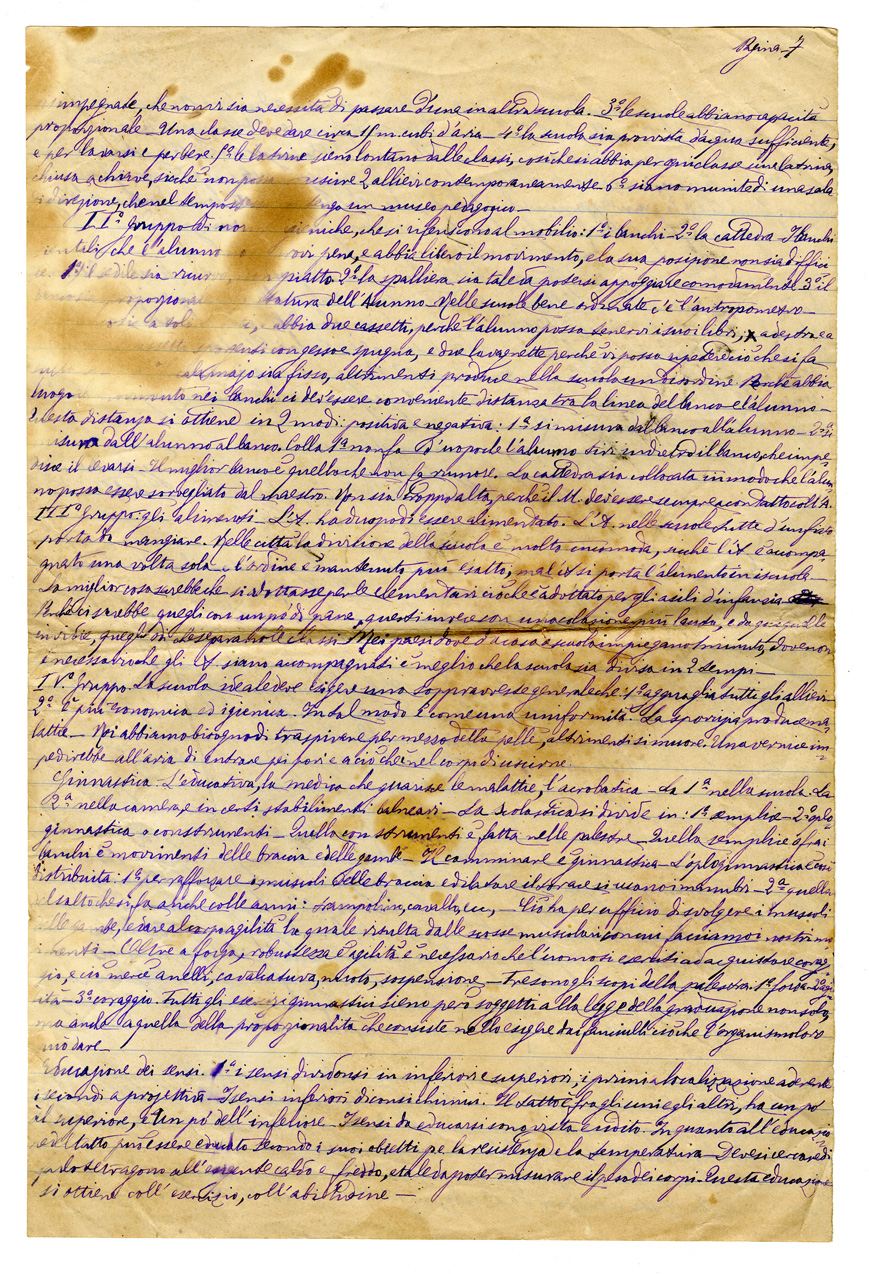 Pagina 7
impegnate, che non vi sia necessità di passare d'una in altra scuola. 3º le scuole abbiano capacità
proporzionale _ Una classe deve dare circa 15 m. cubi d'aria _ 4º la scuola sia provvista d'acqua sufficiente,
e per lavarsi e per bere. 5º le latrine sieno lontano dalle classi, così che si abbia per ogni classe una latrina,
chiusa a chiave, sicché non possa uscirne 2 allievi contemporaneamente. 6º siano munite di una sala
di direzione, che nel tempo stesso tenga un museo pedagogico _
IIº Gruppo di norme igieniche, che si riferiscono al mobilio: 1º i banchi _ 2º la cattedra _ I banchi
che l'alunno provi pena, e abbia libero il movimento, e la sua posizione non sia diffici
1º il sedile sia piatto. 2º la spalliera sia tale da potersi appoggiare comodamente. 3º il
proporzionato statura dell'Alunno _ Nelle scuole bene ordinate c'è l'antropometro _
abbia due cassetti, perchè l'alunno possa tenervi i suoi libri, a destra e a
con gesso e spugna, e due lavagnette perchè vi possa ripetere ciò che si fa
calamajo sia fisso, altrimenti produce nella scuola un disordine. Perchè abbia
luogo nei banchi ci dev'essere conveniente distanza tra la linea del banco e l'alunno _
Questa distanza si ottiene in 2 modi: positiva e negativa: 1ª si misura dal banco all'alunno _ 2ª si
misura dall'alunno al banco. Colla 1ª non fa d'uopo che l'alunno tiri indietro il banco, che impe-
disce il levarsi _ Il miglior banco è quello che non fa rumore. La cattedra sia collocata in modo che l'alun-
no possa essere sorvegliato dal maestro. Non sia troppo alta, perchè il M. dev'essere sempre a contatto coll'A.
IIIº Gruppo: gli alimenti _ L'A. ha duopo di essere alimentato. L'A. nelle scuole
porta da mangiare. Nelle città la divisione della scuola è molto incomoda, sicché l'A è accompa-
gnato una volta sola _ l'ordine è mantenuto più esatto, mal'A si porta l'alimento in iscuola _
La miglior cosa sarebbe che si adottasse per le elementari ciò che è adottato per gli asili d'infanzia
ci sarebbe quegli con un pò di pane, questi invece con una colazione più lauta, e da
invidie, quegli Nei paesi dove da casa a scuola impiegano 1 minuto, dove non
è necessario che gli A siano accompagnati è meglio che la scuola sia divisa in 2 tempi _
IVº Gruppo. La scuola ideale deve esigere una sopravveste generale che: 1º agguaglia tutti gli allievi
2º è più economica ed igienica. In tal modo è come una uniformità _ La sporcizia produce ma-
lattie _ Noi abbiamo bisogno di traspirare per mezzo della pelle, altrimenti si muore. Una vernice im-
pedirebbe all'aria di entrare pei pori e a ciò che è nel corpo di uscirne.
Ginnastica _ L'educativa, la medica che guarisce le malattie, l'acrobatica _ La 1ª nella scuola _ La
2ª nella camera, e in certi stabilimenti balneari _ La scolastica si divide in: 1ª semplice _ 2ª oplo-
ginnastica o con strumenti _ Quella con strumenti è fatta nelle palestre _ Quella semplice è fra i
banchi è movimenti delle braccia e delle gambe _ Il camminare è ginnastica _ L'oploginnastica è così
distribuita: 1ª per rafforzare i muscoli delle braccia e dilatare il torace si usano i manubri _ 2ª quella
del salto che si fa anche colle armi: trampolino, cavallo, ecc. _ Ciò ha per ufficio di svolgere i muscoli
delle gambe, e dare al corpo agilità la quale risulta dalle scosse muscolari con cui facciamo i nostri mo
vimenti _ Oltre a forza, robustezza e agilità è necessario che l'uomo si eserciti ad acquistare corag-
gio, e ciò mercè anelli, cavalcatura, nuoto, sospensione _ Tre sono gli scopi della palestra: 1º forza _ 2º agi
lità _ 3º coraggio. Tutti gli esercizi ginnastici sieno però soggetti alla legge della graduazione non solo,
ma anche a quella della proporzionalità che consiste nello esigere dai fanciulli ciò che l'organismo loro
può dare _
Educazione dei sensi. 1º i sensi dividonsi in inferiori e superiori; i primi a localizzazione aderente
i secondi a projettiva _ I sensi inferiori diconsi chimici. Il tatto è fra gli uni e gli altri, ha un po'
del superiore, e un pò dell'inferiore _ I sensi da educarsi sono vista e udito _ In quanto all'educazio
ne del tatto può essere educato secondo i suoi obietti per la resistenza e la temperatura _ Devesi cercare di
caldo e freddo, e tale da poter misurare il peso dei corpi. Questa educazione
si ottiene coll'esercizio, coll'abitudine _